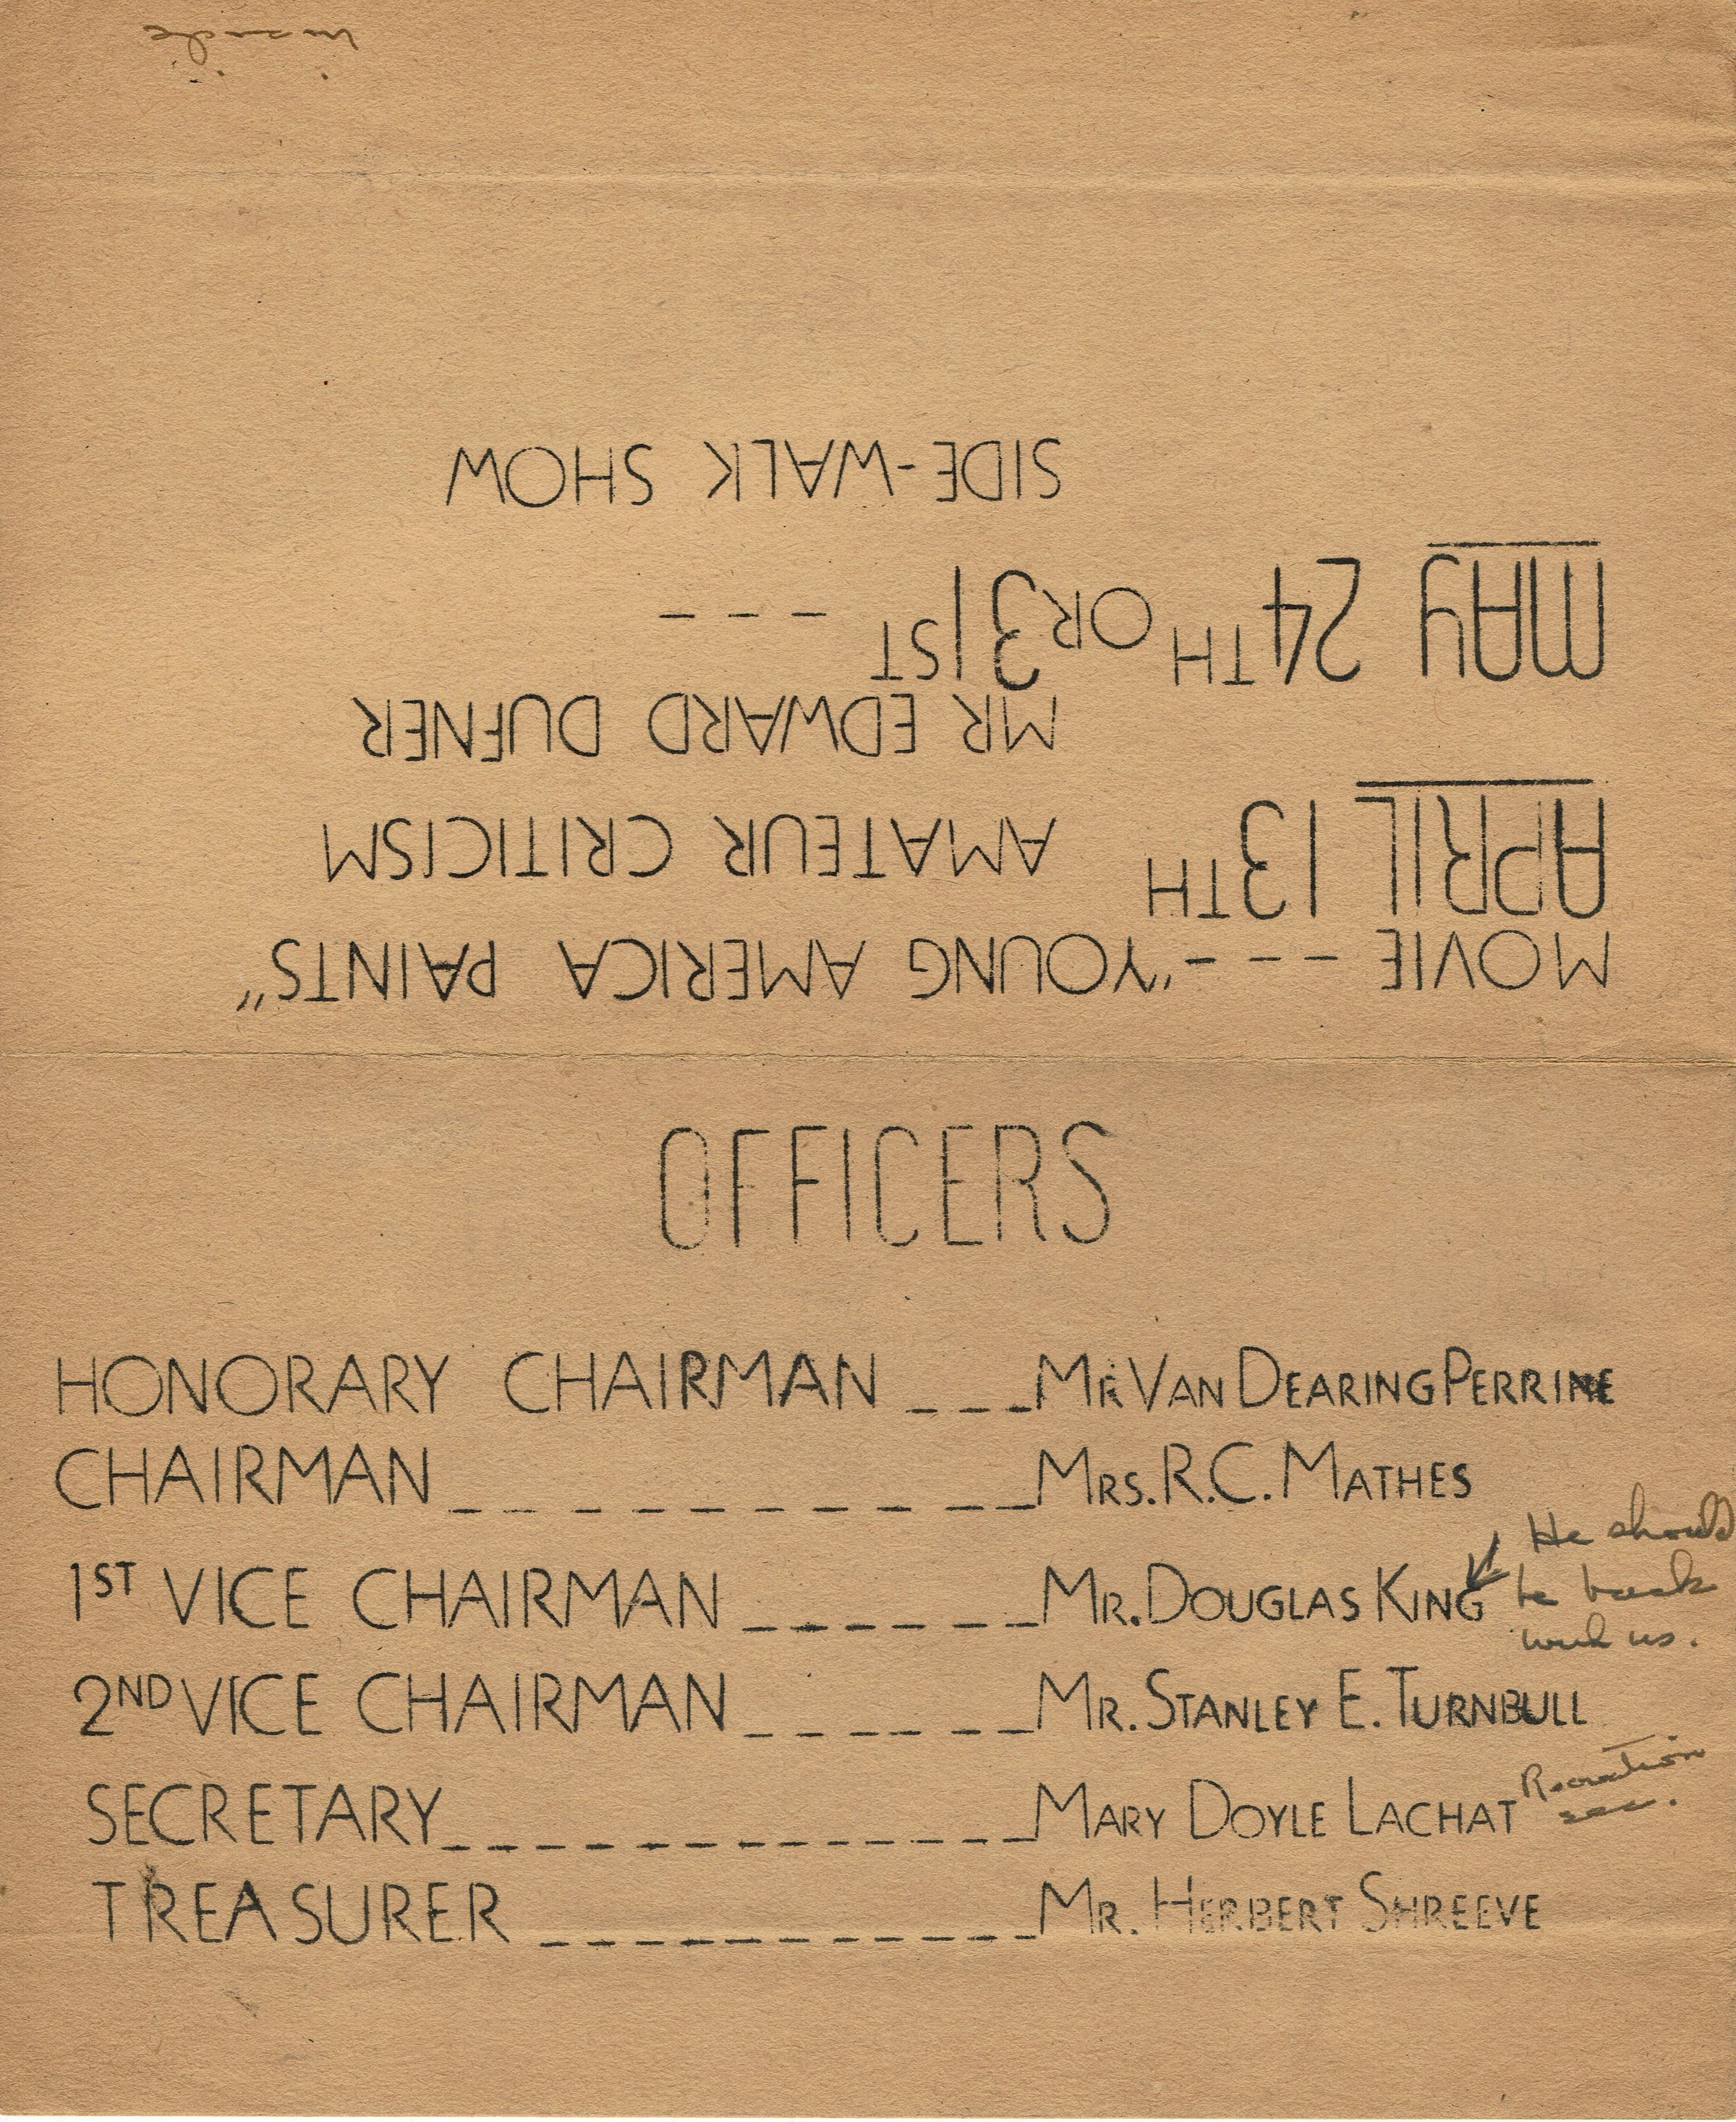 MOVIE - - - "YOUNG AMERICA PAINTS"
APRIL 13TH AMATEUR CRITICISM
MR EDWARD DUFNER
MAY 24TH OR 31ST - - -
SIDE-WALK SHOW
inside
OFFICERS
HONORARY CHAIRMAN _ _ _ MR VAN DEARING PERRINE
CHAIRMAN _ _ _ _ _ _ _ _ _ MRS. R.C. MATHES
1ST VICE CHAIRMAN _ _ _ _ _ _ MR. DOUGLAS KING
He should
be back
with us.
2ND VICE CHAIRMAN _ _ _ _ _ _ MR. STANLEY E. TURNBULL
SECRETARY _ _ _ _ _ _ _ _ _ _ _ _ _ MARY DOYLE LACHAT
Recreation
sec.
TREASURER _ _ _ _ _ _ _ _ _ _ _ MR. HERBERT SHREEVE